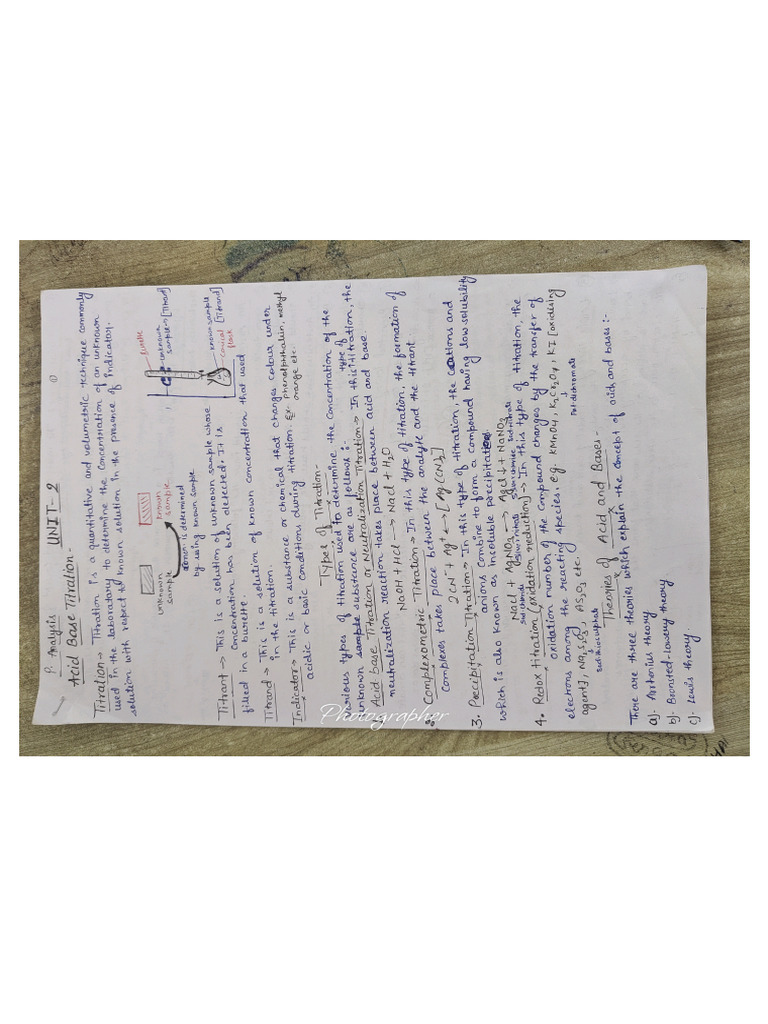 ①
P. Analysis
UNIT- 2
Acid Base Titration -
Titration → Titration is a quantitative and volumetric technique commonly
used in the laboratory to determine the concentration of an unknown
solution with respect to known solution in the presence of indicator.
unknown
sample
known
sample
conc. is determined
by using known sample
burette
unknown
sample → [Titrant]
known sample
[Titrand]
conical
flask
Titrant → This is a solution of unknown sample whose
concentration has been detected. It is
filled in a burette.
Titrand → This is a solution of known concentration that used
in the titration.
Indicator → This is a substance or chemical that changes colour under
acidic or basic conditions during titration. Ex. phenolphthalin, methyl
orange etc.
Types of Titration -
various types of titration used to determine the concentration of the
unknown sample substance are as follows :-
Acid base Titration or Neutralization Titration → In this type of titration, the
neutralization reaction takes place between acid and base.
NaOH + Hcl → Nacl + H2O
Complexometric Titration → In this type of titration, the formation of
complexes takes place between the analyte and the titrant.
2CN⁻ + Ag⁺ ↔ [Ag(CN)2]
3. Precipitation Titration → In this type of titration, the cations and
anions combine to form a compound having low solubility
which is also known as insoluble precipitates.
Nacl + AgNO3 → Agcl↓ + NaNO3
4. Redox titration (oxidation reduction) → In this type of titration, the
oxidation number of the compound changes by the transfer of
electrons among the reacting species. e.g. KMnO4, K2Cr2O7, KI [oxidising
Potdichromate
agent], NA2S2O3, AS2O3 etc.
Theories of Acid and Bases -
There are three theories which explain the concept of acid and bases :-
a). Arrhenius theory
b). Bronsted-lowery theory
c). Lewis theory.
Photographer